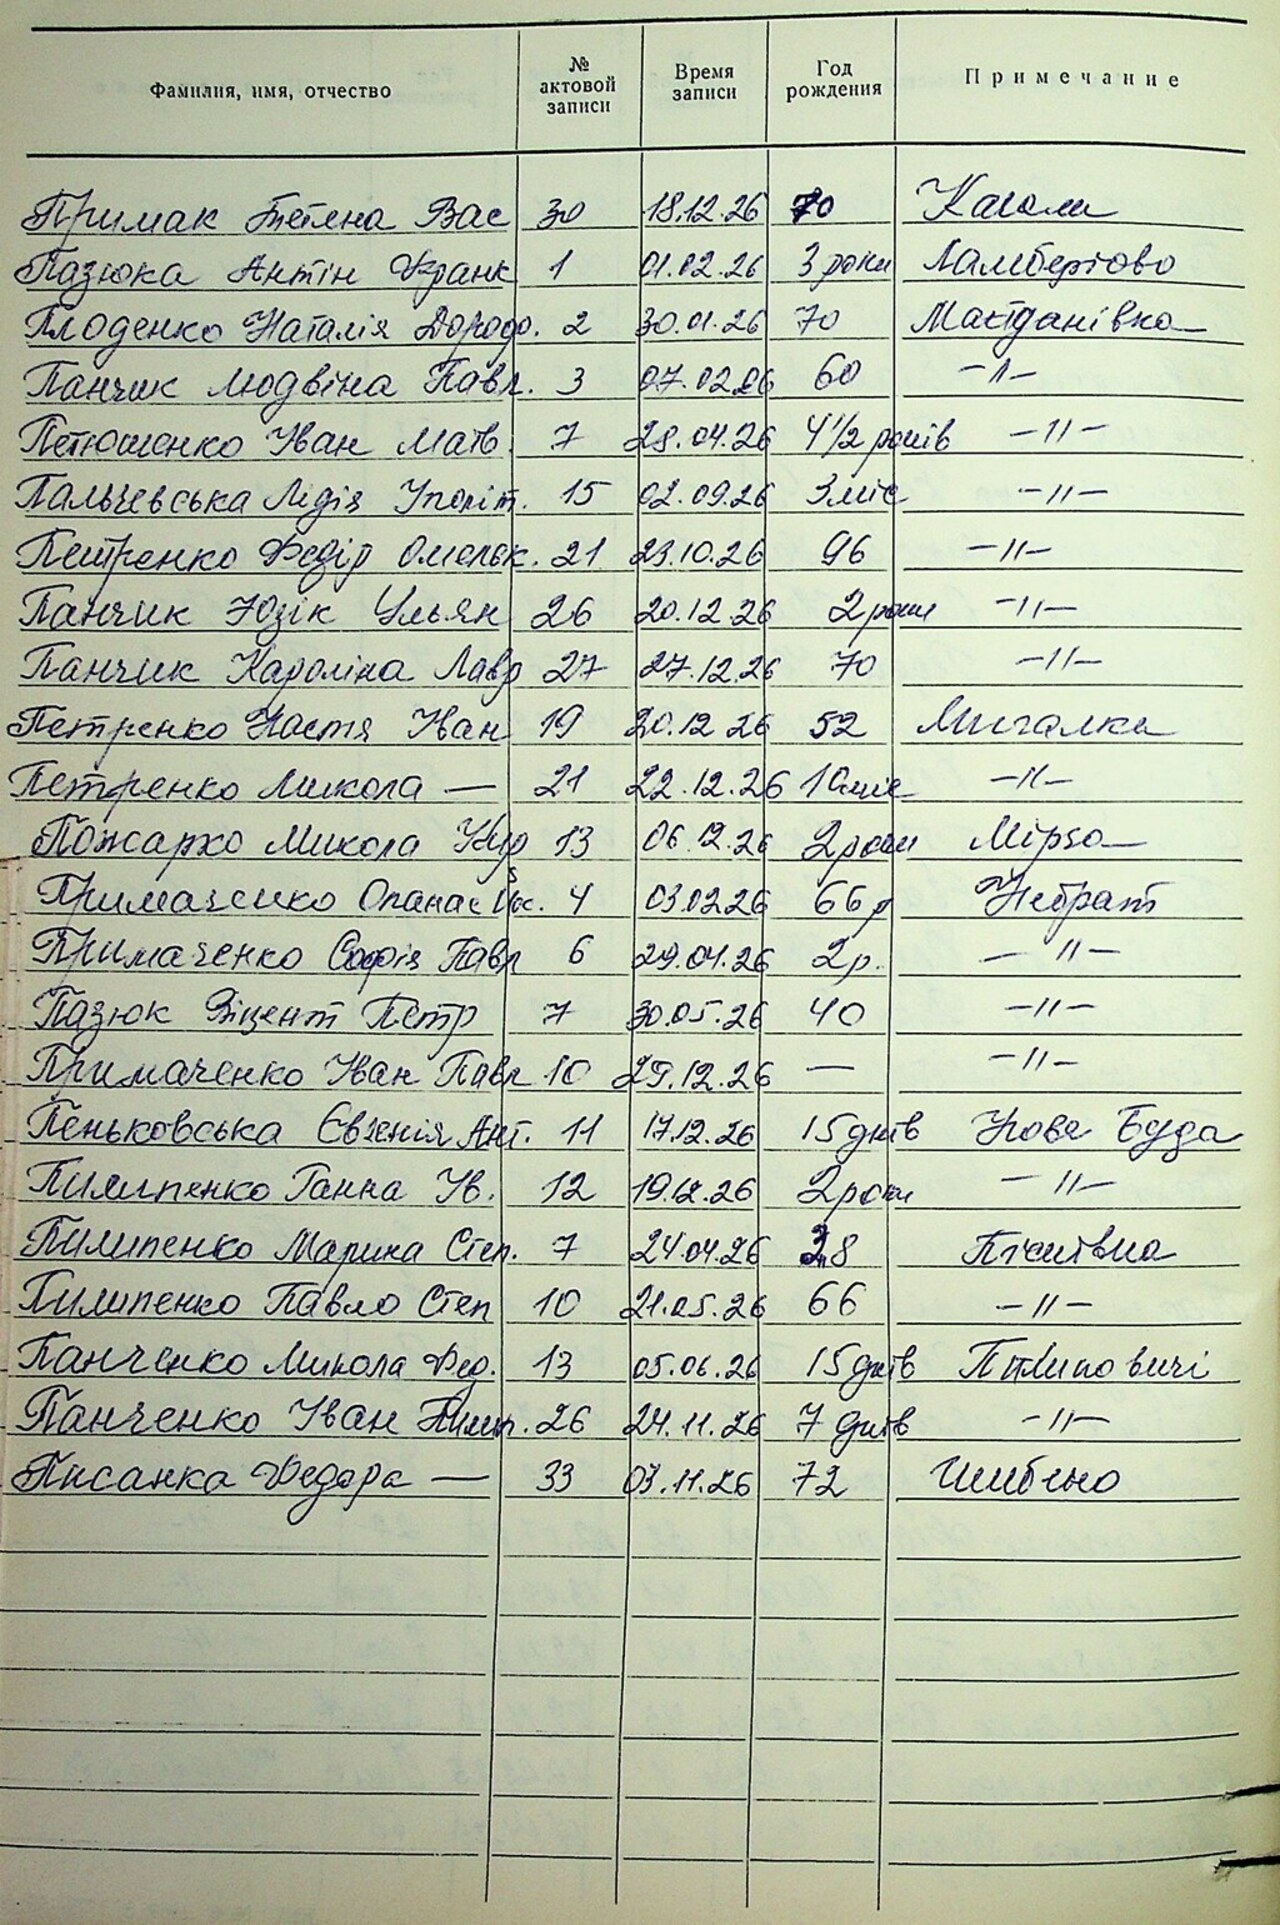 Фамилия, имя, отчество № актовой записи Время записи Год рождения Примечание
Примак Тетяна Вас 30 18.12.26 70 Кагали
Пазюка Антін Франк 1 01.02.26 3 роки Ламбертово
Плоденко Наталія Дородо. 2 30.01.26 70 Майданівка
Панчик Людвіна Павл. 3 07.02.26 60 -//-
Петюшенко Іван Матв. 7 28.04.26 4 1/2 років -//-
Пальчевська Лідія Іполіт. 15 02.09.26 3 міс -//-
Петренко Федір Омельк. 21 23.10.26 96 -//-
Панчик Юзік Ульян 26 20.12.26 2 роки -//-
Панчик Кароліна Лавр 27 27.12.26 70 -//-
Петренко Настя Іван 19 20.12 26 52 Мигалки
Петренко Микола — 21 22.12.26 10 міс -//-
Пожарко Микола 13 06.12.26 2 роки Мірча
Примаченко Опанас Йос. 4 03.02.26 66 р Небрат
Примаченко Софія Павл 6 29.04.26 2 р. -//-
Пазюк Віцент Петр 7 30.05.26 40 -//-
Примаченко Іван Павл 10 29.12.26 — -//-
Пеньковська Євгенія Ант. 11 17.12.26 15 днів Нова Буда
Пилипенко Ганна Ів. 12 19.12.26 2 роки -//-
Пилипенко Марина Степ. 7 24.04.26 28
Пилипенко Павло Степ 10 21.05.26 66 -//-
Панченко Микола Фед. 13 05.06.26 15 днів Пилиповичі
Панченко Іван Пилип. 26 24.11.26 7 днів -//-
Писанка Федора — 33 03.11.26 72 Шибено